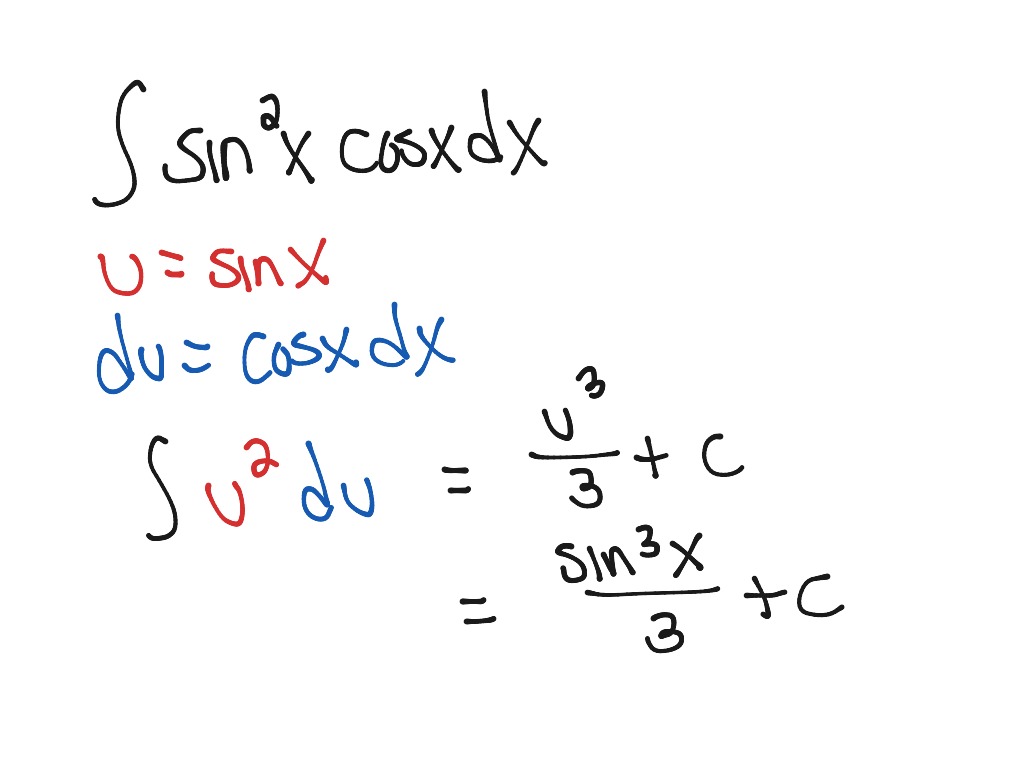 ∫ sin²x cosx dx
u = sinx
du = cosx dx
∫ u² du = u³/3 + C
= sin³x/3 + C